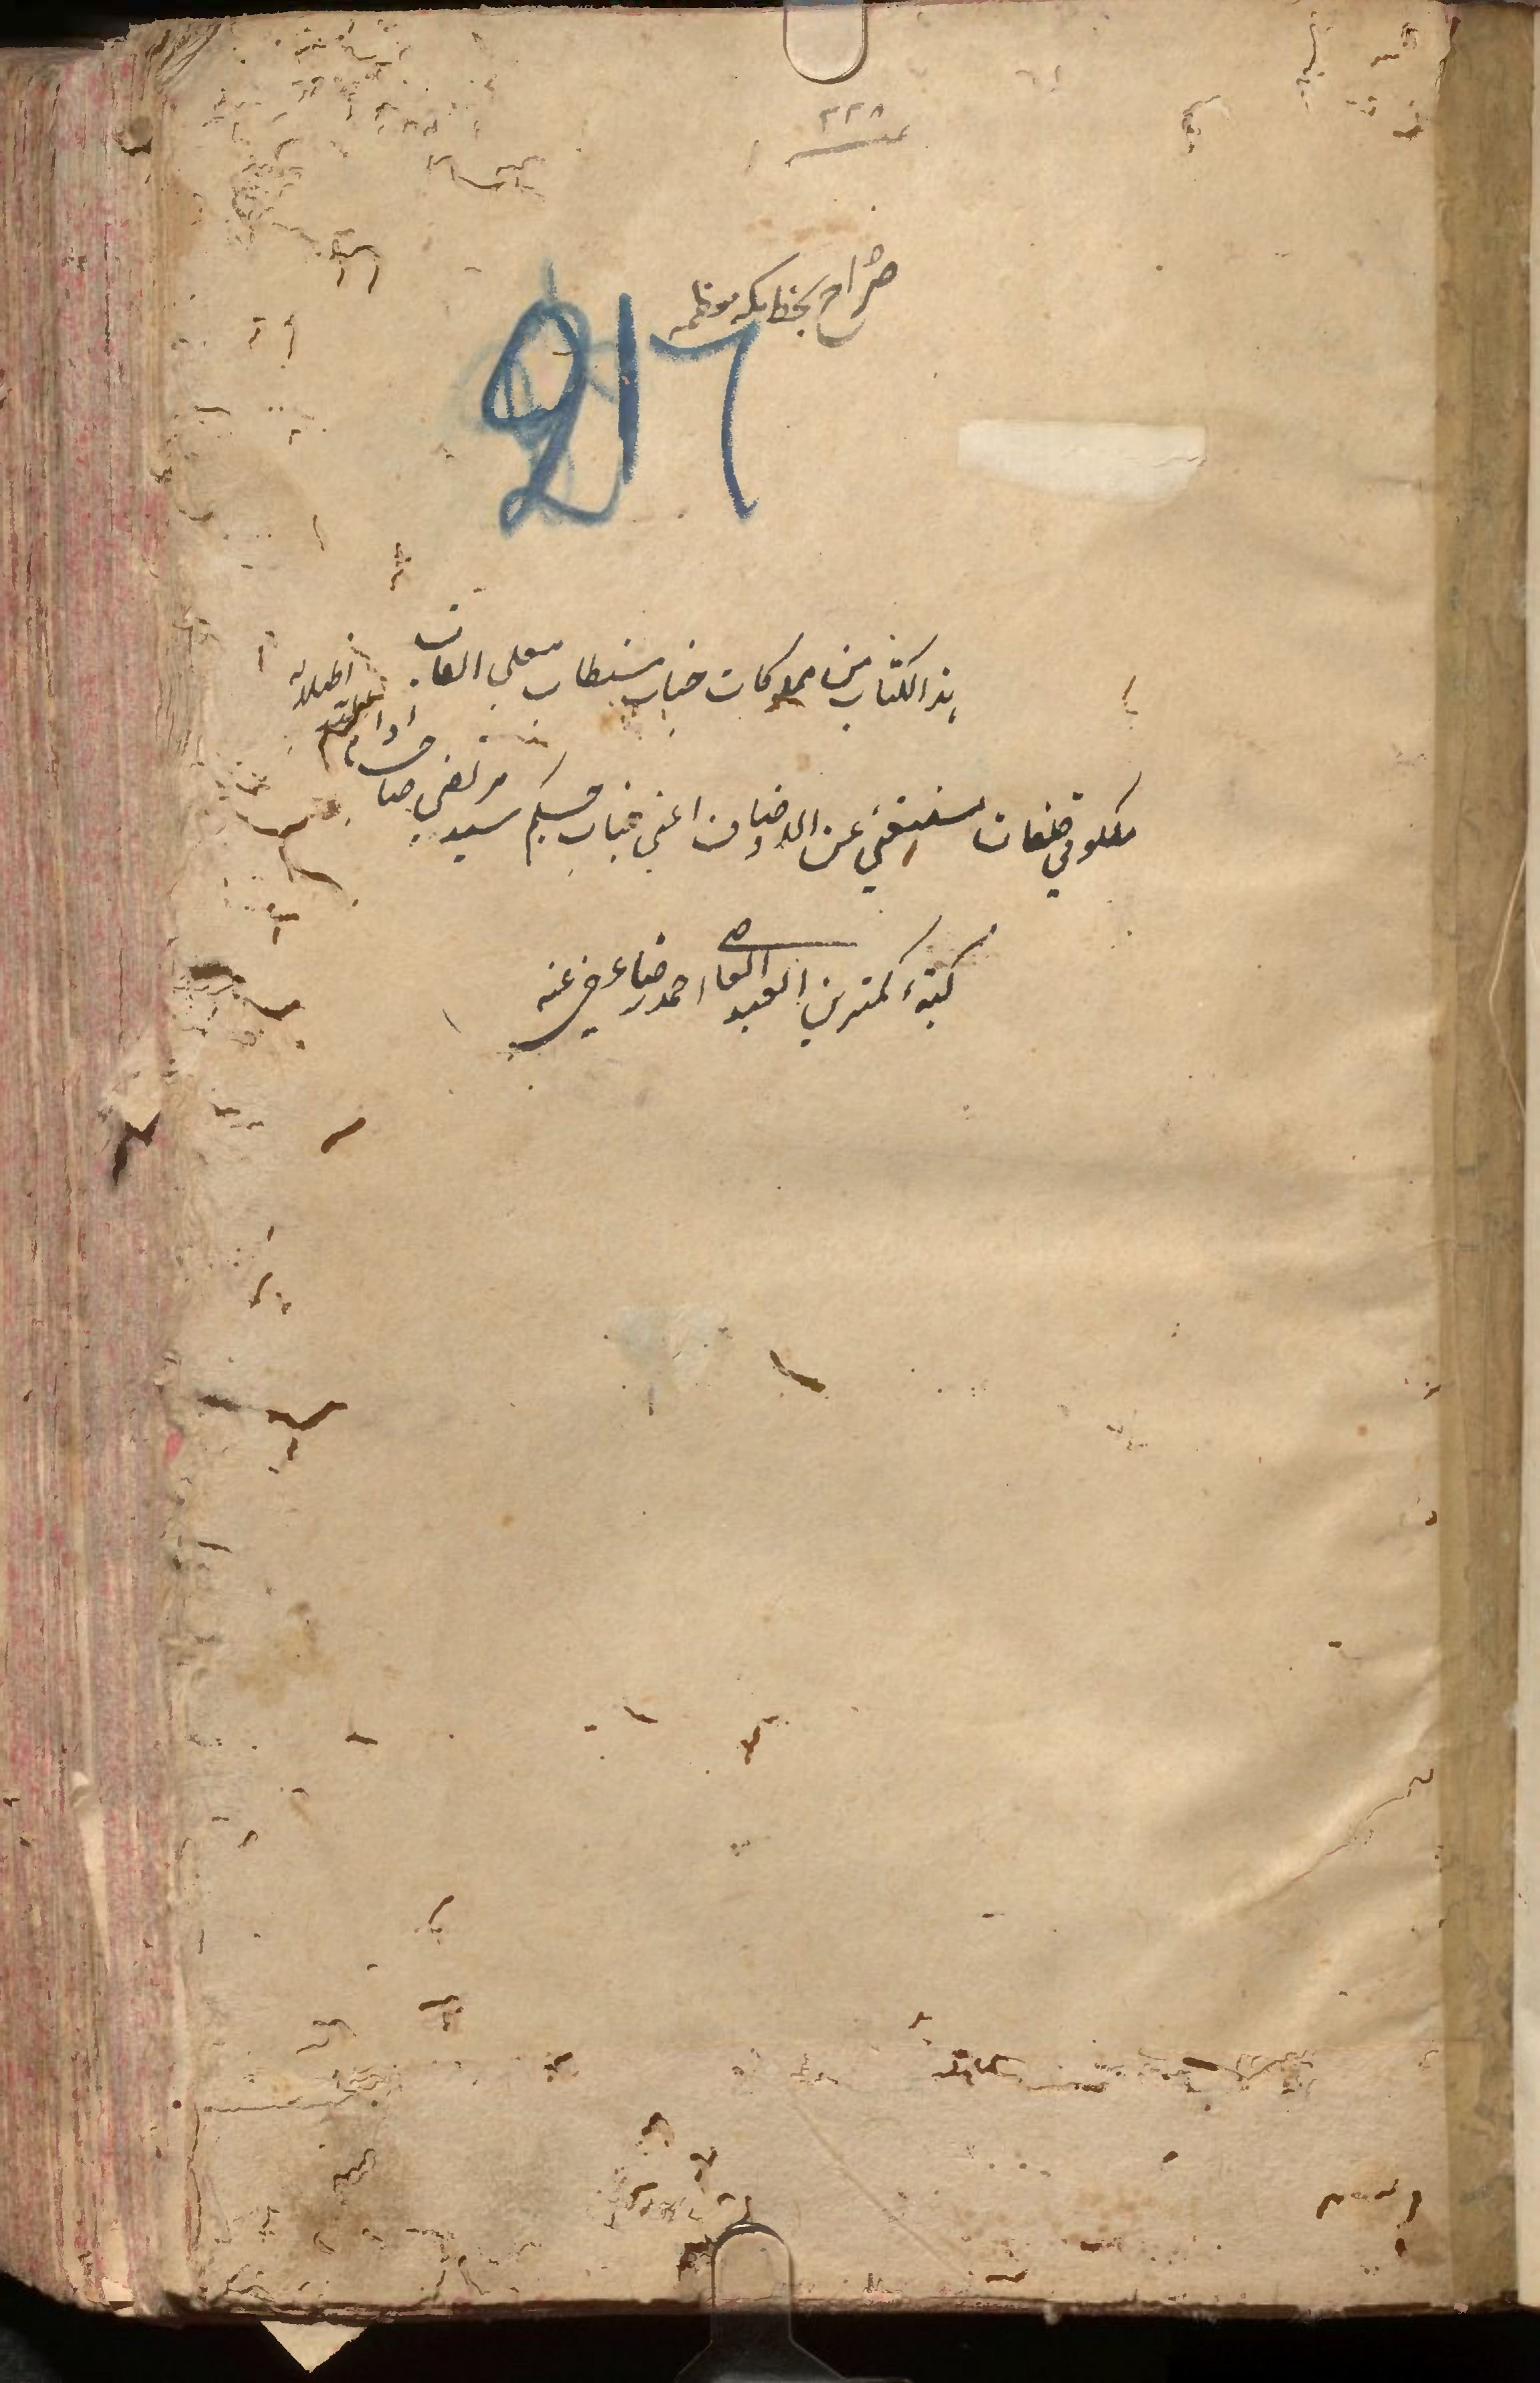 ۲۲۸
صراح بخط مکه معظمه
هذا الکتاب من مملوکات جناب مستطاب معلی القاب
ملکوتی صفات مستغنی عن الاوصاف اعنی جناب حکیم سید مرتضی صاحب ادام
کتبه کمترین العبد العاصی احمد رضا عفی عنه